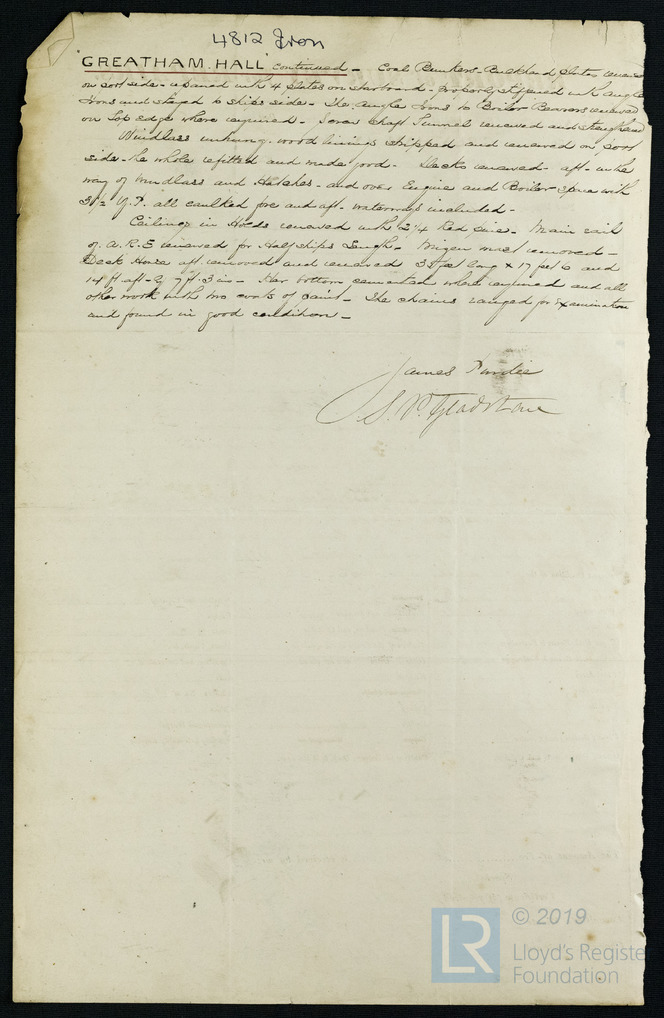 4812 Iron
GREATHAM. HALL continued - Coal Bunkers - Bulkhead plates renewed
on port side - repaired with 4 plates on starboard - properly stiffened with angle
Irons and stayed to ships side - The Angle Irons to Boiler Bearers renewed
on top edge where required - Screw Shaft Tunnel renewed and strengthened
Windlass unhung - wood linings stripped and renewed on port
side - the whole refitted and made good - Decks renewed - aft - in the
way of windlass and Hatches - and over Engine and Boiler space with
3½ Y.P. all caulked fore and aft - waterways included -
Ceiling in Holds renewed with 2¼ Red pine - Main rail
of A.R.E renewed for Half ships length - Mizen mast removed -
Deck House aft removed and renewed 35 feet long x 17 feet 6 and
14 ft aft - by 7 ft. 3 in - Her bottom cemented where required and all
other work with two coats of paint - The chains ranged for Examination
and found in good condition -
James Purdie
S. P. Gladstone
LR © 2019
Lloyd's Register
Foundation